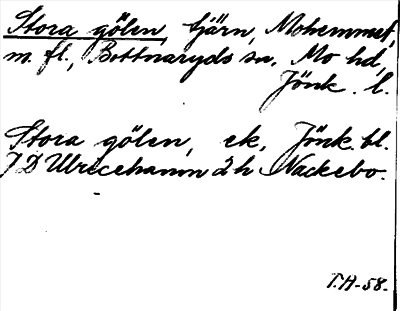 Stora gölen, tjärn, Mohemmet,
m. fl., Bottnaryds sn, Mo hd,
Jönk. l.
Stora gölen, ek, Jönk. bl.
7 D Ulricehamn 2 h Nackebo.
T.H-58.